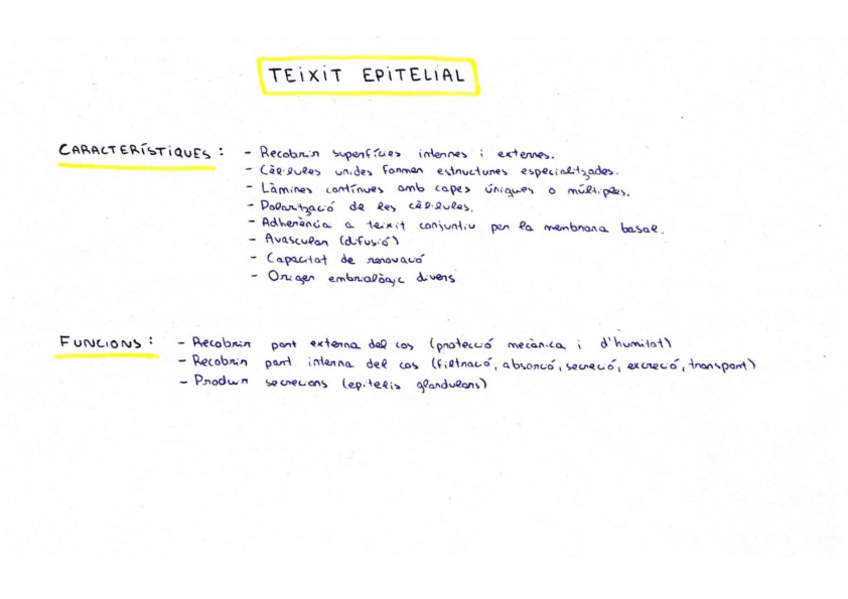 TEIXIT EPITELIAL
CARACTERÍSTIQUES: - Recobrir superfícies internes i externes.
- Cèl·lules unides formen estructures especialitzades.
- Làmines contínues amb capes úniques o múltiples.
- Polarització de les cèl·lules.
- Adherència a teixit conjuntiu per la membrana basal.
- Avascular (difusió)
- Capacitat de renovació
- Origen embriològic divers
FUNCIONS: - Recobrir part externa del cos (protecció mecànica i d'humitat)
- Recobrir part interna del cos (filtració, absorció, secreció, excreció, transport)
- Produir secrecions (epitelis glandulars)